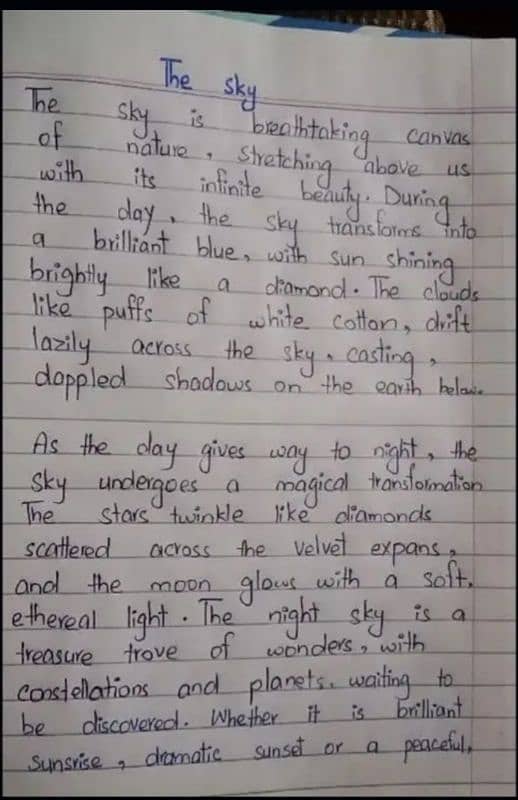 The sky
The sky is breathtaking canvas
of nature, stretching above us
with its infinite beauty. During
the day, the sky transforms into
a brilliant blue, with sun shining
brightly like a diamond. The clouds
like puffs of white cotton, drift
lazily across the sky, casting,
dappled shadows on the earth below.
As the day gives way to night, the
sky undergoes a magical transformation
The stars twinkle like diamonds
scattered across the velvet expans,
and the moon glows with a soft,
ethereal light. The night sky is a
treasure trove of wonders, with
constellations and planets, waiting to
be discovered. Whether it is brilliant
sunsrise, dramatic sunset or a peaceful,